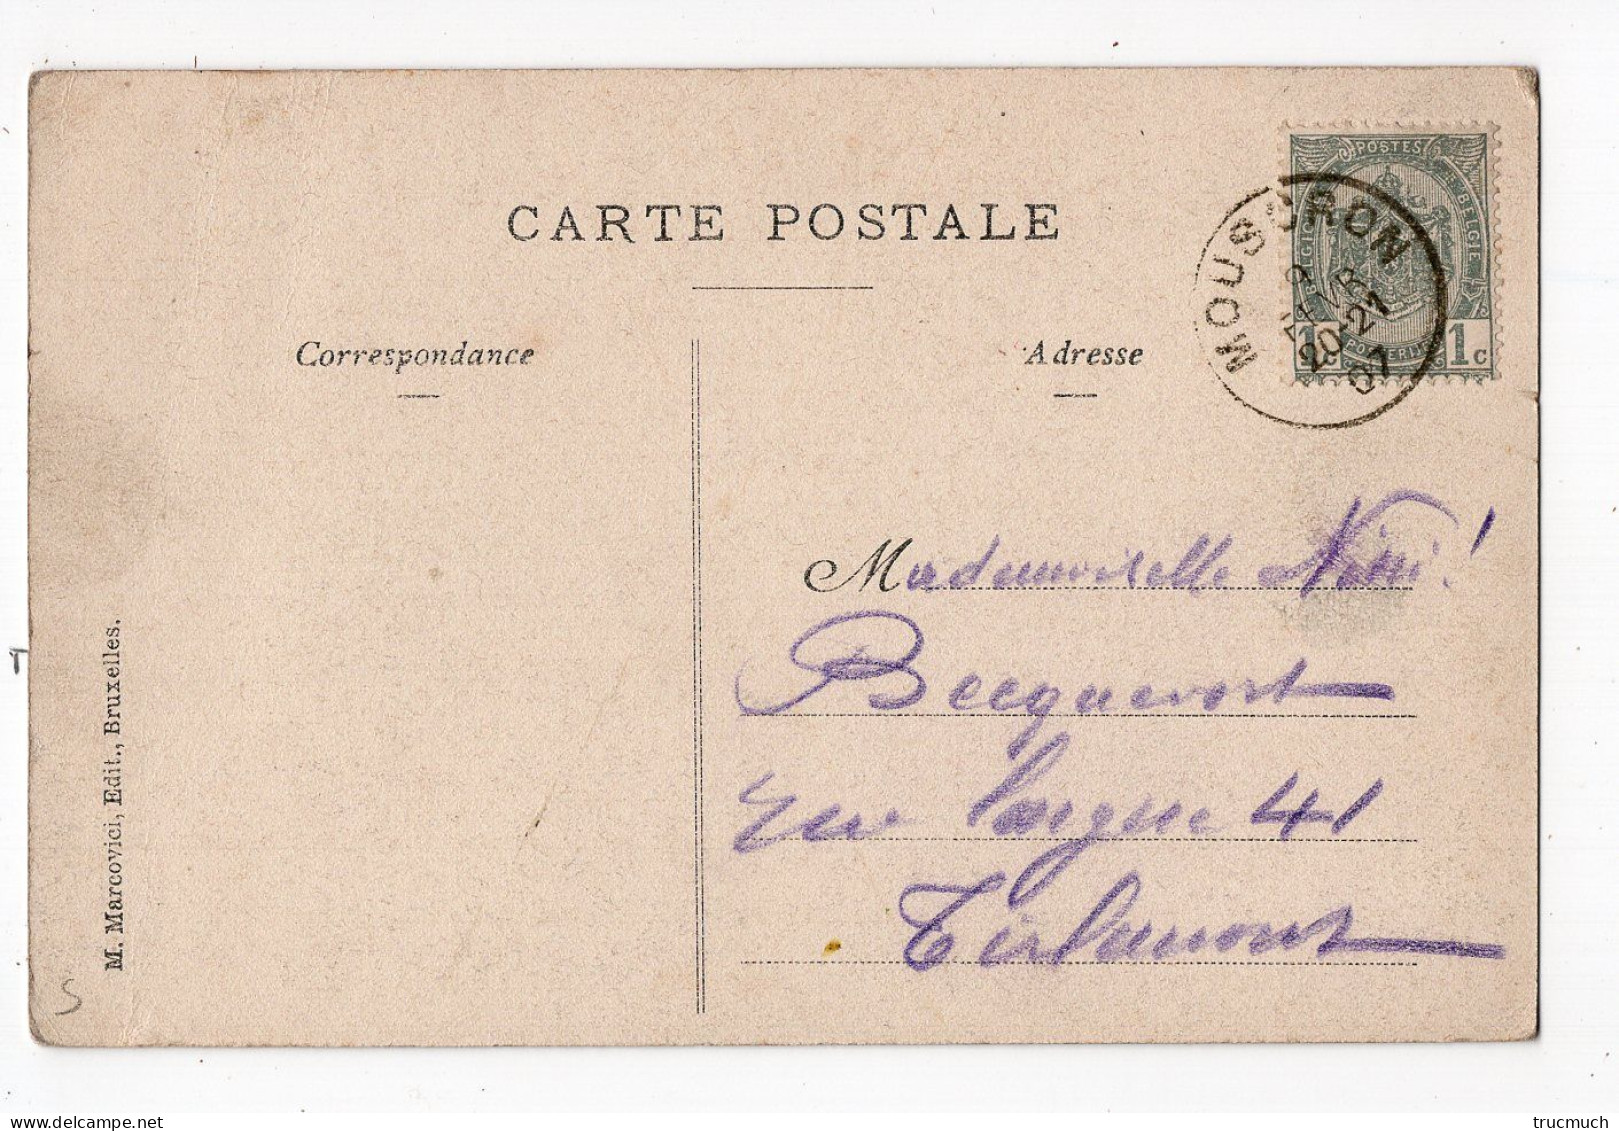 CARTE POSTALE
Correspondance
Adresse
POSTES
BELGIE
1c 1c
MOUSCRON
20-21
07
Mademoiselle Nini!
Becquevort
rue longue 41
Tirlemont
M. Marcovici, Edit., Bruxelles.
S
trucmuch